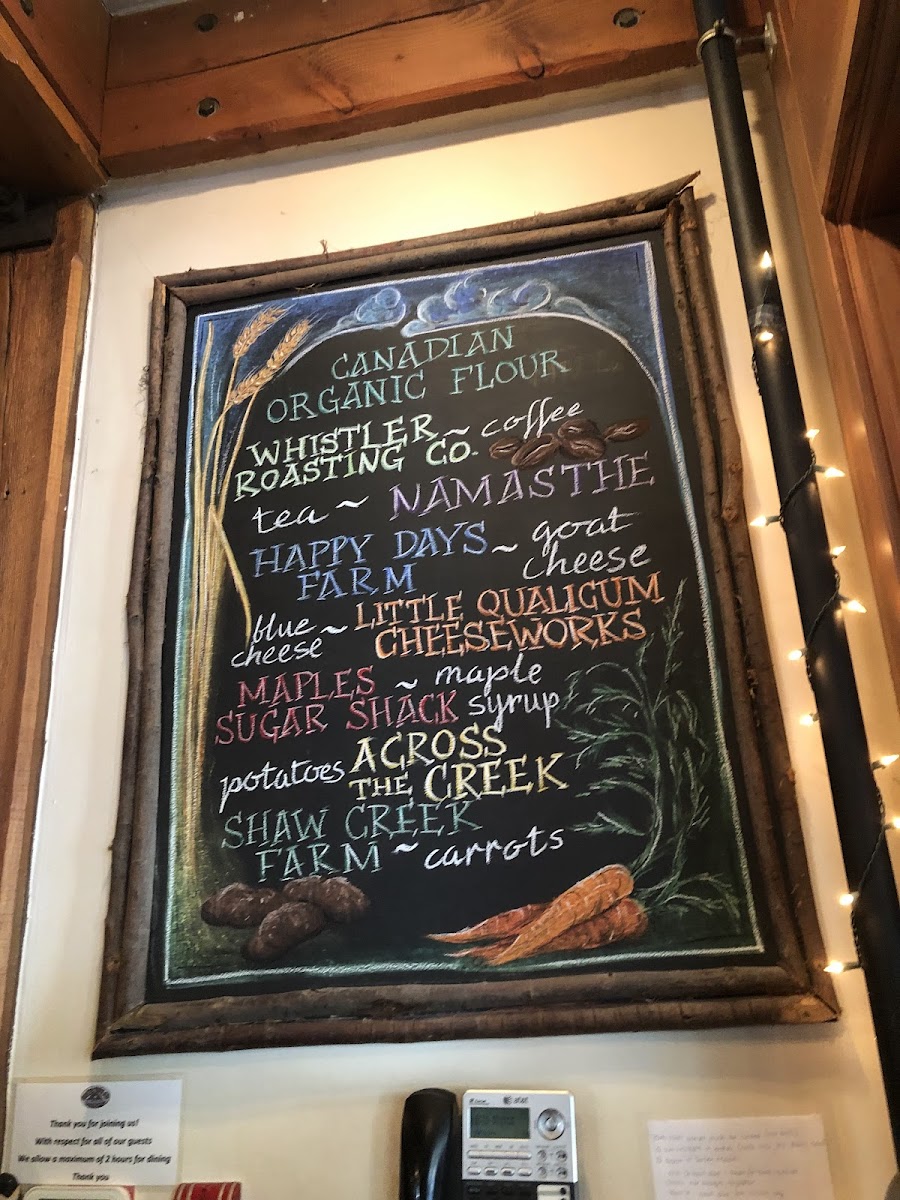 CANADIAN
ORGANIC FLOUR
WHISTLER ~ coffee
ROASTING CO.
tea ~ NAMASTHE
HAPPY DAYS ~ goat
FARM cheese
blue ~ LITTLE QUALICUM
cheese CHEESEWORKS
MAPLES ~ maple
SUGAR SHACK syrup
potatoes ACROSS
THE CREEK
SHAW CREEK
FARM ~ carrots
Thank you for joining us!
With respect for all of our guests
We allow a maximum of 2 hours for dining
Thank you
at&t